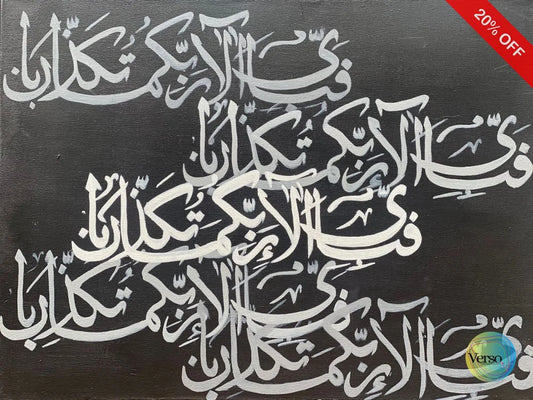 20% OFF
فبأي آلاء ربكما تكذبان
فبأي آلاء ربكما تكذبان
فبأي آلاء ربكما تكذبان
فبأي آلاء ربكما تكذبان
فبأي آلاء ربكما تكذبان
Verso